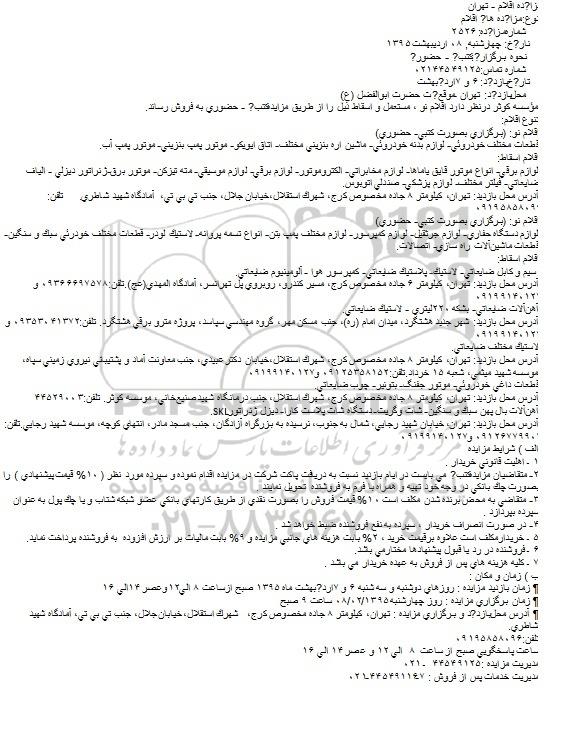 مزا?ده اقلام - تهران
نوع:مزا?ده ها? اقلام
شماره‌مزا?ده: ۲۵۲۶
تار?خ: چهارشنبه, ۰۸ اردیبهشت ۱۳۹۵
نحوه برگزار?:کتب? - حضور?
شماره تماس:۰۲۱۴۴۵۴۹۱۲۵
تار?خ‌بازد?د: ۶ و ۷ارد?بهشت
محل‌بازد?د: تهران ـموقع?ت حضرت ابوالفضل (ع)
مؤسسه کوثر درنظر دارد اقلام نو ، مستعمل و اسقاط ذیل را از طریق مزایدهکتب? - حضوری به فروش رساند.
تنوع اقلام:
اقلام نو: (برگزاري بصورت كتبي- حضوري)
قطعات مختلف خودروئي- لوازم بدنه خودروئي- ماشین اره بنزیني مختلف- اتاق ایویکو- موتور پمپ بنزیني- موتور پمپ آب.
اقلام اسقاط:
لوازم برقي- انواع موتور قایق یاماها- لوازم مخابراتي- الکتروموتور- لوازم برقي- لوازم موسیقي- مته تیزکن- موتور برق-ژنراتور دیزلي - الیاف
ضایعاتي- فیلتر مختلف- لوازم پزشکي- صندلي اتوبوس.
آدرس محل بازدید: تهران، کیلومتر ۸ جاده مخصوص کرج، شهرك استقلال،خیابان جلال، جنب تي بي تي، آمادگاه شهید شاطري. تلفن:
۰۹۱۹۵۸۵۸۰۹۰
اقلام نو: (برگزاري بصورت كتبي- حضوري)
لوازم دستگاه حفاري- لوازم جرثقیل- لوازم کمپرسور- لوازم مختلف پمپ بتن- انواع تسمه پروانه- لاستیك لودر- قطعات مختلف خودرئي سبك و سنگین-
قطعات ماشین‌آلات راه سازي- اتصالات.
اقلام اسقاط:
سیم و کابل ضایعاتي- لاستیك- پلاستیك ضایعاتي- کمپرسور هوا - آلومینیوم ضایعاتي.
آدرس محل بازدید: تهران، کیلومتر ۶ جاده مخصوص کرج، مسیر کندرو، روبروي پل تهرانسر، آمادگاه المهدي(عج).تلفن:۰۹۳۶۶۶۹۷۵۷۸ و
۰۹۱۹۹۱۴۰۱۲۰
آهن‌آلات ضایعاتي- بشکه ۲۲۰لیتري - لاستیك ضایعاتي.
آدرس محل بازدید: شهر جدید هشتگرد، میدان امام (ره)، جنب مسکن مهر، گروه مهندسي سپاسد، پروژه مترو برقي هشتگرد. تلفن:۰۹۳۵۳۰۴۱۳۷۲ و
۰۹۱۹۹۱۴۰۱۲۰
لاستیك مختلف ضایعاتي.
آدرس محل بازدید: تهران، کیلومتر ۸ جاده مخصوص کرج، شهرك استقلال،خیابان دکتر عبیدي، جنب معاونت آماد و پشتیباني نیروي زمیني سپاه،
موسسه شهید میثمي، شعبه ۱۵ خرداد.تلفن:۰۹۱۲۵۳۵۸۱۵۲ و۰۹۱۹۹۱۴۰۱۲۷
قطعات داغي خودروئي- موتور جفنگ- بتونیر- چوب ضایعاتي.
آدرس محل بازدید: تهران، کیلومتر ۸ جاده مخصوص کرج، شهرك استقلال، جنب درمانگاه شهیدصنیع‌خاني، موسسه کوثر. تلفن: ۴۴۵۲۹۰۰۳
آهن‌آلات بال پهن سبك و سنگین- شات وگریت- دستگاه شات پلاست کارا- دیزل ژنراتورSKL.
آدرس محل بازدید: تهران، خیابان شهید رجایي، شمال به جنوب، نرسیده به بزرگراه آزادگان، جنب مسجد مادر، انتهاي کوچه، موسسه شهید رجایي.تلفن:
۰۹۱۲۶۷۷۹۹۰ و۰۹۱۹۹۱۴۰۱۲۷
الف ) شرایط مزایده
۱ - اهلیت قانوني خریدار .
۲- متقاضیان مزایدهکتب? مي بایست در ایام بازدید نسبت به دریافت پاکت شرکت در مزایده اقدام نموده و سپرده مورد نظر ( ۱۰% قیمت‌پیشنهادي ) را
بصورت چك بانکي در وجه خود تهیه و همراه با فرم به فروشنده تحویل نمایند.
۳- متقاضي به محض برنده شدن مکلف است ۱۰% قیمت فروش را بصورت نقدي از طریق کارتهاي بانکي عضو شبکه شتاب و یا چك پول به عنوان
سپرده بپردازد .
۴- در صورت انصراف خریدار ، سپرده به نفع فروشنده ضبط خواهد شد .
۵ - خریدارمکلف است علاوه برقیمت خرید ، ۲% بابت هزینه هاي جانبي مزایده و ۹% بابت مالیات بر ارزش افزوده به فروشنده پرداخت نماید.
۶ - فروشنده در رد یا قبول پیشنهادها مختارمي باشد.
۷ - کلیه هزینه هاي پس از فروش به عهده خریدار مي باشد .
ب ) زمان و مکان :
¶ زمان بازدید مزایده : روزهاي دوشنبه و سه شنبه ۶ و ۷ارد?بهشت ماه ۱۳۹۵ صبح ازساعت ۸ الي۱۲ وعصر۱۴الي ۱۶
¶ زمان برگزاري مزایده : روز چهارشنبه۰۸/۰۲/۱۳۹۵ ساعت ۹ صبح
¶ آدرس محل‌بازد?د و برگزاري مزایده : تهران، کیلومتر ۸ جاده مخصوص کرج، شهرك استقلال،خیابان‌جلال، جنب تي بي تي، آمادگاه شهید
شاطري.
تلفن:۰۹۱۹۵۸۵۸۰۹۶
ساعت پاسخگویي صبح از ساعت ۸ الي ۱۲ و عصر ۱۴ الي ۱۶
مدیریت مزایده :۴۴۵۴۹۱۲۵ -۰۲۱
مدیریت خدمات پس از فروش : ۰۲۱-۴۴۵۴۹۱۱۴۷